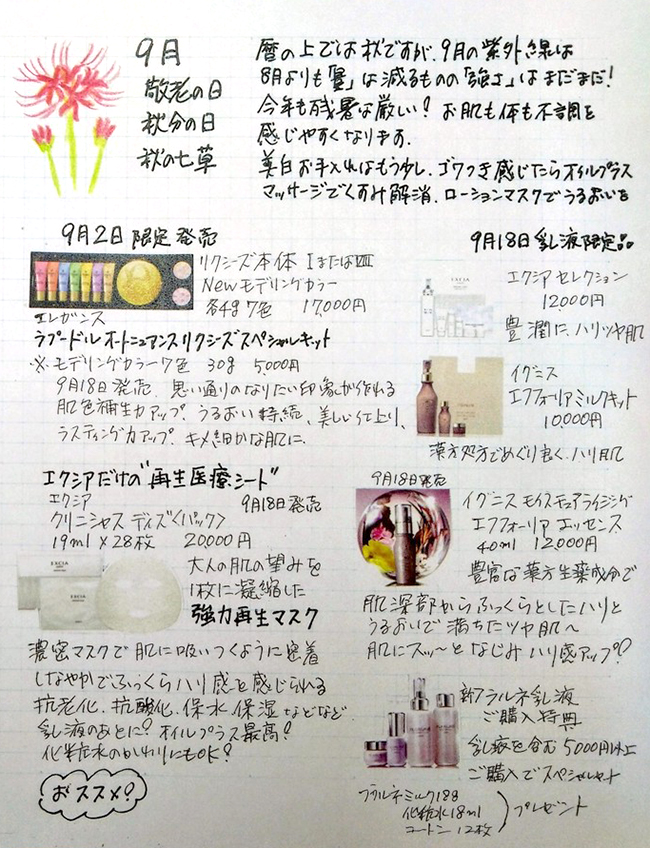 9月
敬老の日
秋分の日
秋の七草
暦の上では秋ですが、9月の紫外線は
8月よりも「量」は減るものの「強さ」はまだまだ!
今年も残暑は厳しい? お肌も体も不調を
感じやすくなります.
美白お手入れはもう少し. ゴワつき感じたらオイルプラス
マッサージでくすみ解消. ローションマスクでうるおいを
9月2日限定発売
リクシーズ本体 ⅠまたはⅢ
Newモデリングカラー
各4g 7色 17,000円
エレガンス
ラプードル オートニュアンス リクシーズスペシャルキット
※モデリングカラー7色 30g 5,000円
9月18日発売. 思い通りのなりたい印象が作れる
肌色補生力アップ. うるおい持続、美しい仕上り、
ラスティング力アップ. キメ細かな肌に.
エクシアだけの"再生医療シート"
エクシア 9月18日発売
クリニシャス デイズ〈パック〉
19ml×28枚 20,000円
EXCIA
大人の肌の望みを
1枚に凝縮した
強力再生マスク
濃密マスクで肌に吸いつくように密着
しなやかでふっくらハリ感を感じられる
抗老化. 抗酸化. 保水. 保湿 などなど
乳液のあとに? オイルプラス最高!
化粧水のかわりにもOK?
おススメ?
9月18日 乳液限定品
EXCIA
エクシア セレクション
12,000円
豊潤に、ハリツヤ肌
イグニス
エフフォーリアミルクキット
10,000円
漢方処方でめぐり良く、ハリ肌
9月18日発売
イグニス モイスチュアライジング
エフフォーリア エッセンス
40ml 12,000円
豊富な漢方生薬成分で
肌深部からふっくらとしたハリと
うるおいで満ちたツヤ肌〜
肌にスッ〜となじみハリ感アップ!?
新フラルネ乳液
ご購入特典
乳液を含む5,000円以上
ご購入でスペシャルセット
フラルネミルク18g
化粧水18ml
コットン12枚
プレゼント